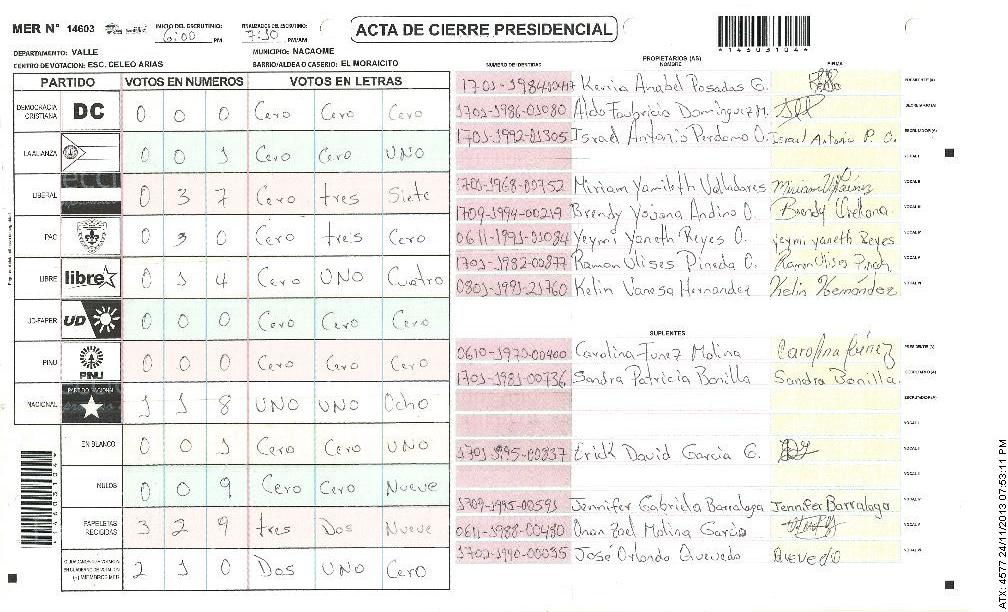 MER N° 14603
INICIO DEL ESCRUTINIO: 6:00 PM
FINALIZACION DEL ESCRUTINIO: 7:30 PM/AM
ACTA DE CIERRE PRESIDENCIAL
DEPARTAMENTO: VALLE
MUNICIPIO: NACAOME
CENTRO DE VOTACION: ESC. CELEO ARIAS
BARRIO/ALDEA O CASERIO: EL MORAICITO
PARTIDO VOTOS EN NUMEROS VOTOS EN LETRAS
DEMOCRACIA CRISTIANA DC 0 0 0 Cero Cero Cero
LA ALIANZA 0 0 1 Cero Cero UNO
LIBERAL 0 3 7 Cero tres Siete
PAC 0 3 0 Cero treis Cero
LIBRE libre 0 1 4 Cero UNO Cuatro
UD-FAPER UD 0 0 0 Cero Cero Cero
PINU PINU 0 0 0 Cero Cero Cero
NACIONAL PARTIDO NACIONAL 1 1 8 UNO UNO Ocho
EN BLANCO 0 0 1 Cero Cero UNO
NULOS 0 0 9 Cero Cero Nueve
PAPELETAS RECIBIDAS 3 2 9 tres Dos Nueve
(+) MIEMBROS MER 2 1 0 Dos UNO Cero
PROPIETARIOS (AS)
NUMERO DE IDENTIDAD NOMBRE FIRMA
Kenia Anabel Posadas G. PRESIDENTE (A)
1701-1986-01080 Aldo Faubricio Dominguez M. SECRETARIO (A)
1701-1992-01305 Israel Antonio Perdomo O. Israel Antonio P. O. ESCRUTADOR (A)
VOCAL I
1701-1968-00752 Miriam Yamileth Valladares VOCAL II
1709-1994-00219 Brendy Yojana Andino O. Brendy Orellana VOCAL III
0611-1991-01084 Yeymi Yaneth Reyes O. Yeymi Yaneth Reyes VOCAL IV
1701-1982-00877 Ramon Ulises Pineda O. Ramon Ulises VOCAL V
0801-1991-21760 Kelin Vanesa Hernandez Kelin Hernández VOCAL VI
SUPLENTES
0610-1970-00400 Carolina Funez Molina Carolina Fúnez PRESIDENTE (A)
1701-1981-00736 Sandra Patricia Bonilla Sandra Bonilla. SECRETARIO (A)
ESCRUTADOR (A)
VOCAL I
1701-1995-00837 Erick David Garcia G. VOCAL II
VOCAL III
1709-1995-00591 Jennifer Gabriela Barralaga Jennifer Barralaga VOCAL IV
0611-1988-00480 Molina Garcia VOCAL V
1702-1990-00035 José Orlando Quevedo Quevedo VOCAL VI
ATX: 4577 24/11/2013 07:53:11 PM